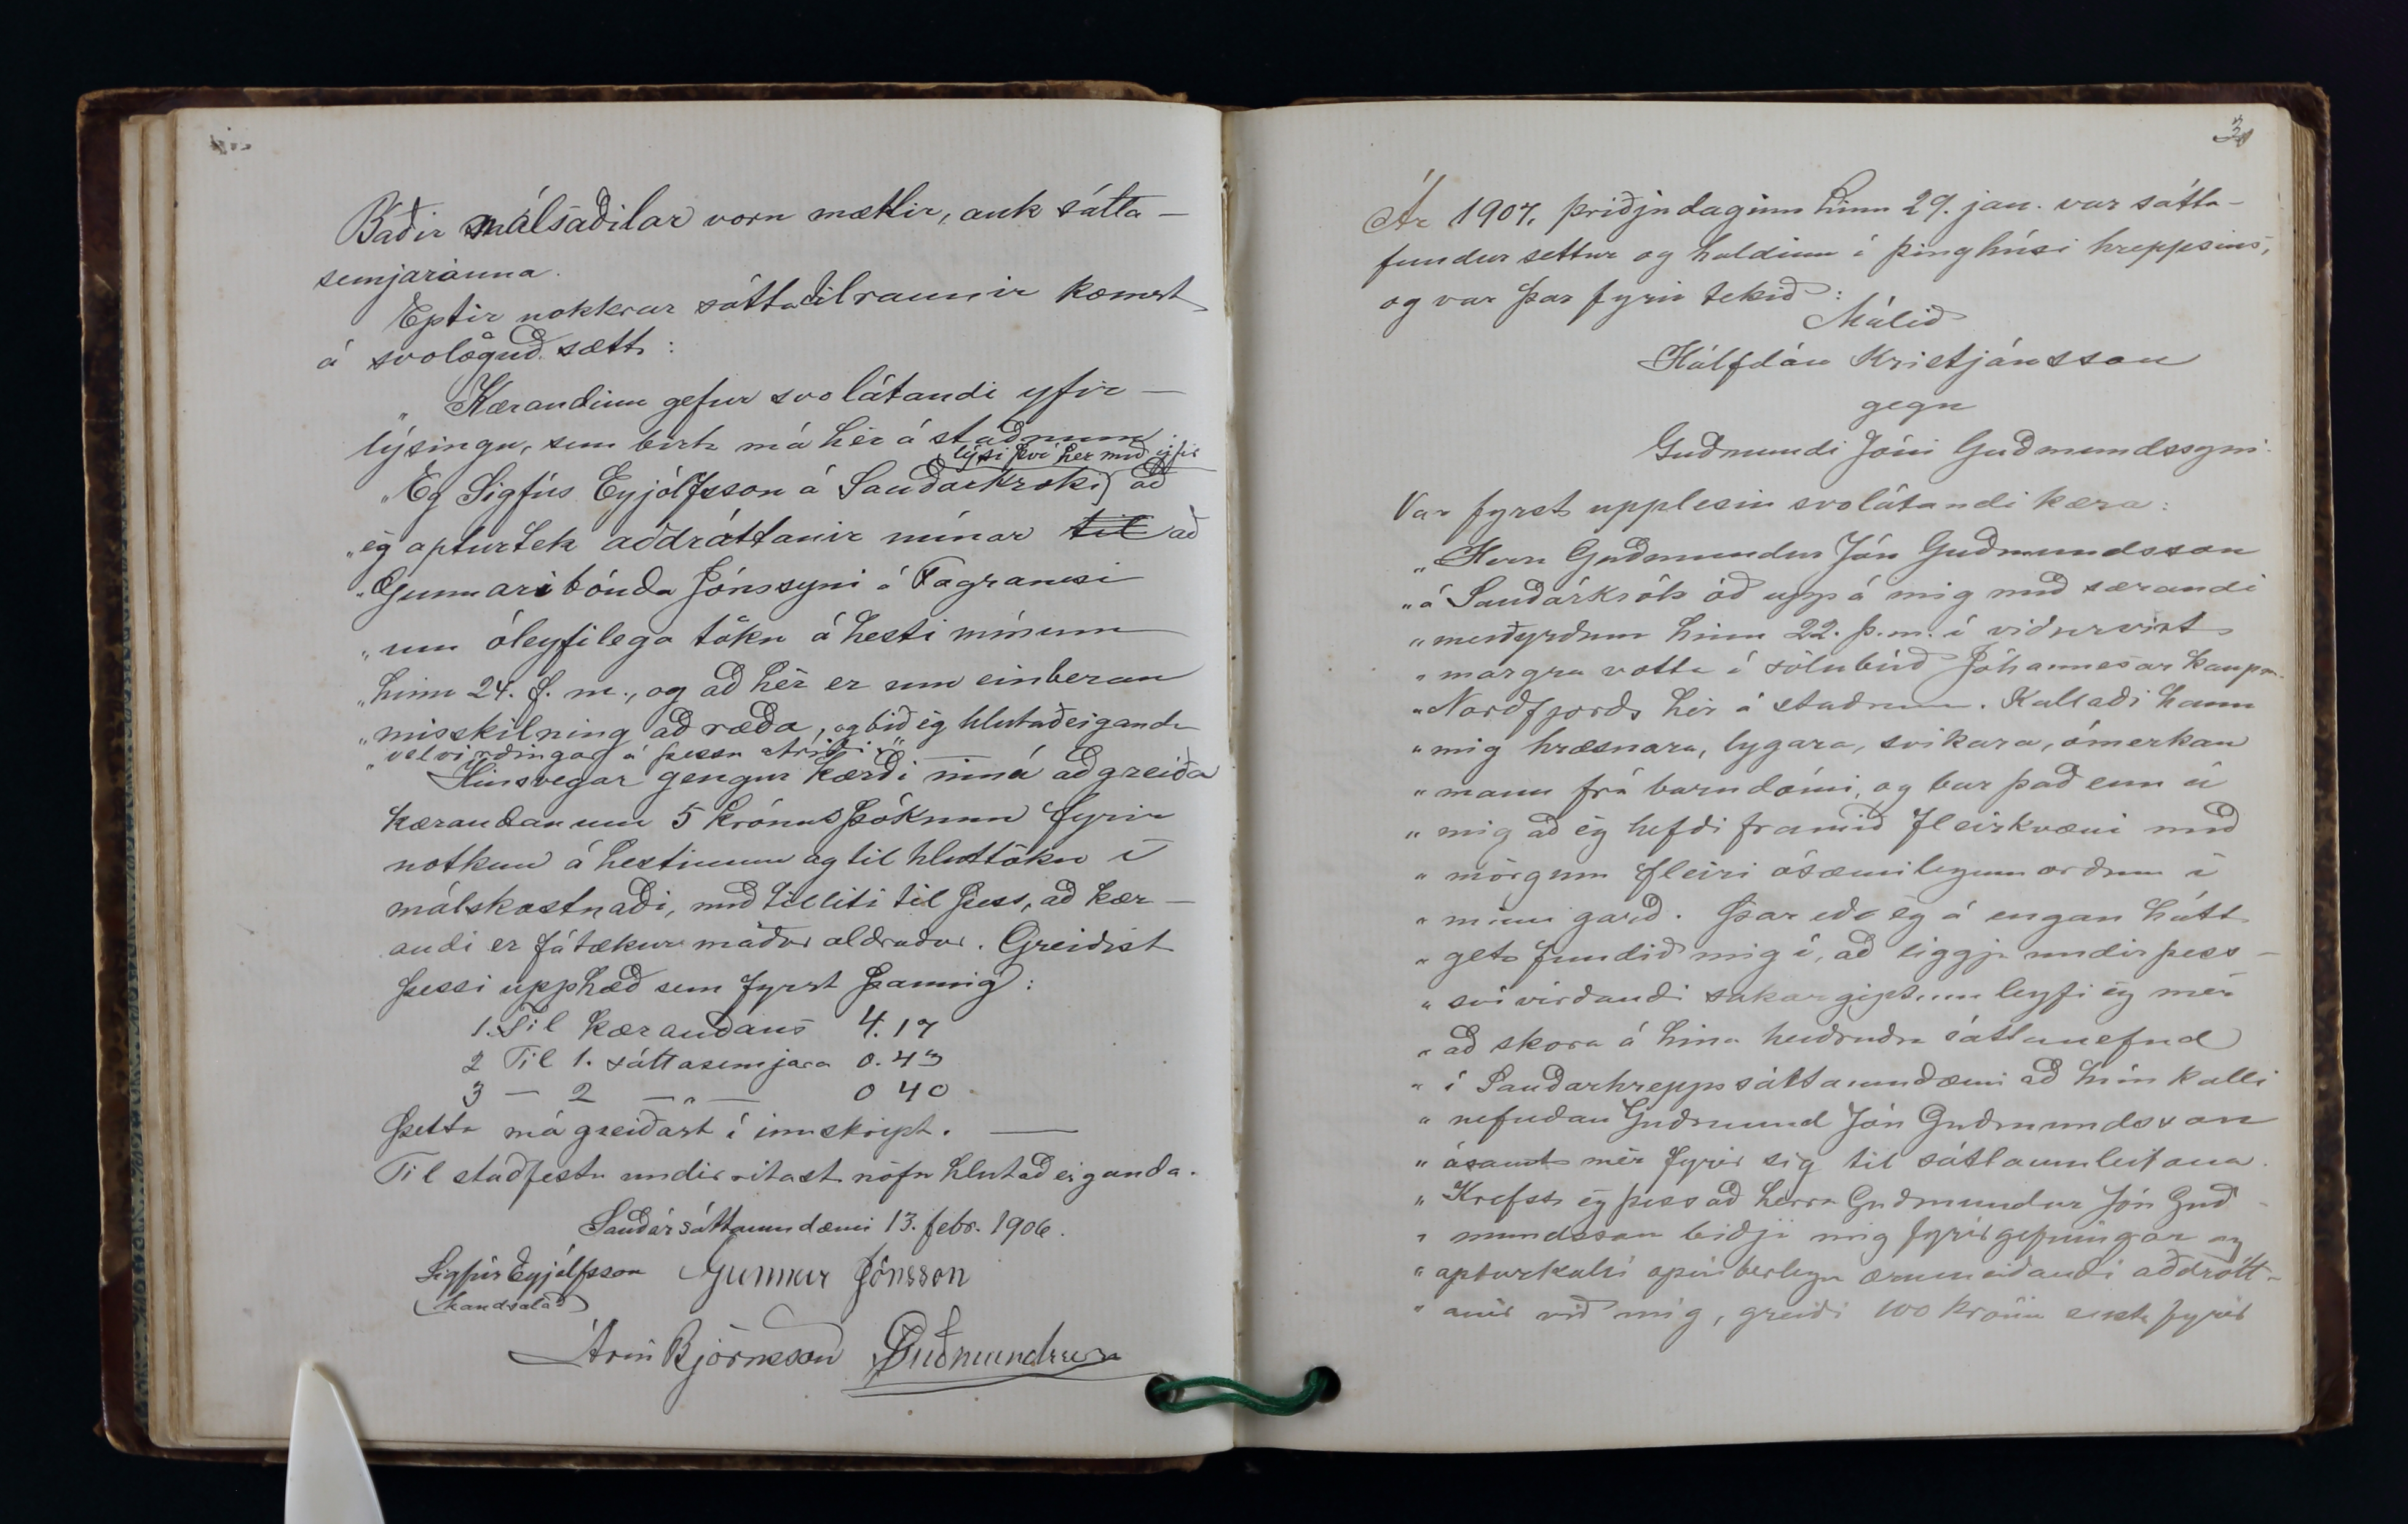 Báðir málsaðilar voru mættir, auk sátta-
semjaranna.
Eptir nokkrar sáttatilraunir komst
á svolöguð sætt:
„Kærandinn gefur svolátandi yfir-
lýsingu, sem birta má hér á staðnum:
lýsi því hér með yfir
„Eg Sigfús Eyjólfsson á Sauðárkróki að
„ég apturtek aðdróttanir mínar til að
„Gunnari bónda Jónssyni á Fagranesi
„um óleyfilega töku á hesti mínum
„hinn 24. f. m., og að hér er um einberan
„misskilning að ræða, og bið ég hlutaðeigandi
„velvirðingar á þessu atriði.“
Hinsvegar gengur kærði inná að greiða
kærandanum 5 króna þóknun fyrir
notkun á hestinum og til hluttöku í
málskostnaði, með tilliti til þess, að kær-
andi er fátækur maður aldraður. Greiðist
þessi upphæð sem fyrst þannig:
1. Til kærandans 4.17
2 Til 1. sáttasemjara 0.43
3 — 2 —„— 0 40
Þetta má greiðast í innskript. —
Til staðfestu undirritast nöfn hlutaðeiganda.
Sauðársáttaumdæmi 13. febr. 1906.
Sigfús Eyjólfsson Gunnar Jónsson
(handsalað)
Árni Björnsson
3
Ár 1907, þriðjudaginn hinn 29. jan. var sátta-
fundur settur og haldinn í þinghúsi hreppsins,
og var þar fyrir tekið:
Málið
Hálfdán Kristjánsson
gegn
Guðmundi Jóni Guðmundssyni.
Var fyrst upplesin svolátandi kæra:
„Herra Guðmundur Jón Guðmundsson
„á Sauðárkrók óð upp á mig með særandi
„meiðyrðum hinn 22. þ. m. í viðurvist
„margra votta í sölubúð Jóhannesar kaupm.
„Norðfjörðs hér á staðnum. Kallaði hann
„mig hræsnara, lygara, svikara, ómerkan
„mann frá barndómi, og bar það enn á
„mig að ég hefði framið fleirkvæni með
„mörgum fleiri ósæmilegum orðum í
„minn garð. Þar eð ég á engan hátt
„get fundið mig í, að liggja undir þess-
„sví virðandi sakargiptum leyfi ég mér
„að skora á hina heiðruðu sáttanefnd
„í Sauðárhrepps sáttaumdæmi að hún kalli
„nefndan Guðmund Jón Guðmundsson
„ásamt mér fyrir sig til sáttaumleitana.
„Krefst ég þess að herra Guðmundur Jón Guð-
„mundsson biðji mig fyrirgefningar og
„apturkalli opinberlega ærumeiðandi aðdrótt-
„anir við mig, greiði 100 króna sekt fyrir